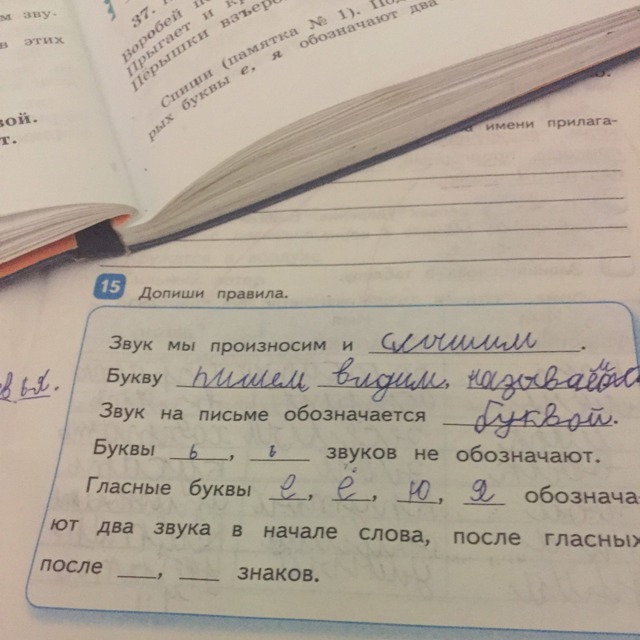 м зву-
в этих
вой.
т.
37.
Воробей
Прыгает и
Пёрышки взъеро
Спиши (памятка № 1). По
рых буквы е, я обозначают два
имени прилага-
15 Допиши правила.
Звук мы произносим и слышим.
Букву пишем видим, называем
Звук на письме обозначается буквой.
Буквы ь, ъ звуков не обозначают.
Гласные буквы е, ё, ю, я обознача-
ют два звука в начале слова, после гласных
после ___, ___ знаков.